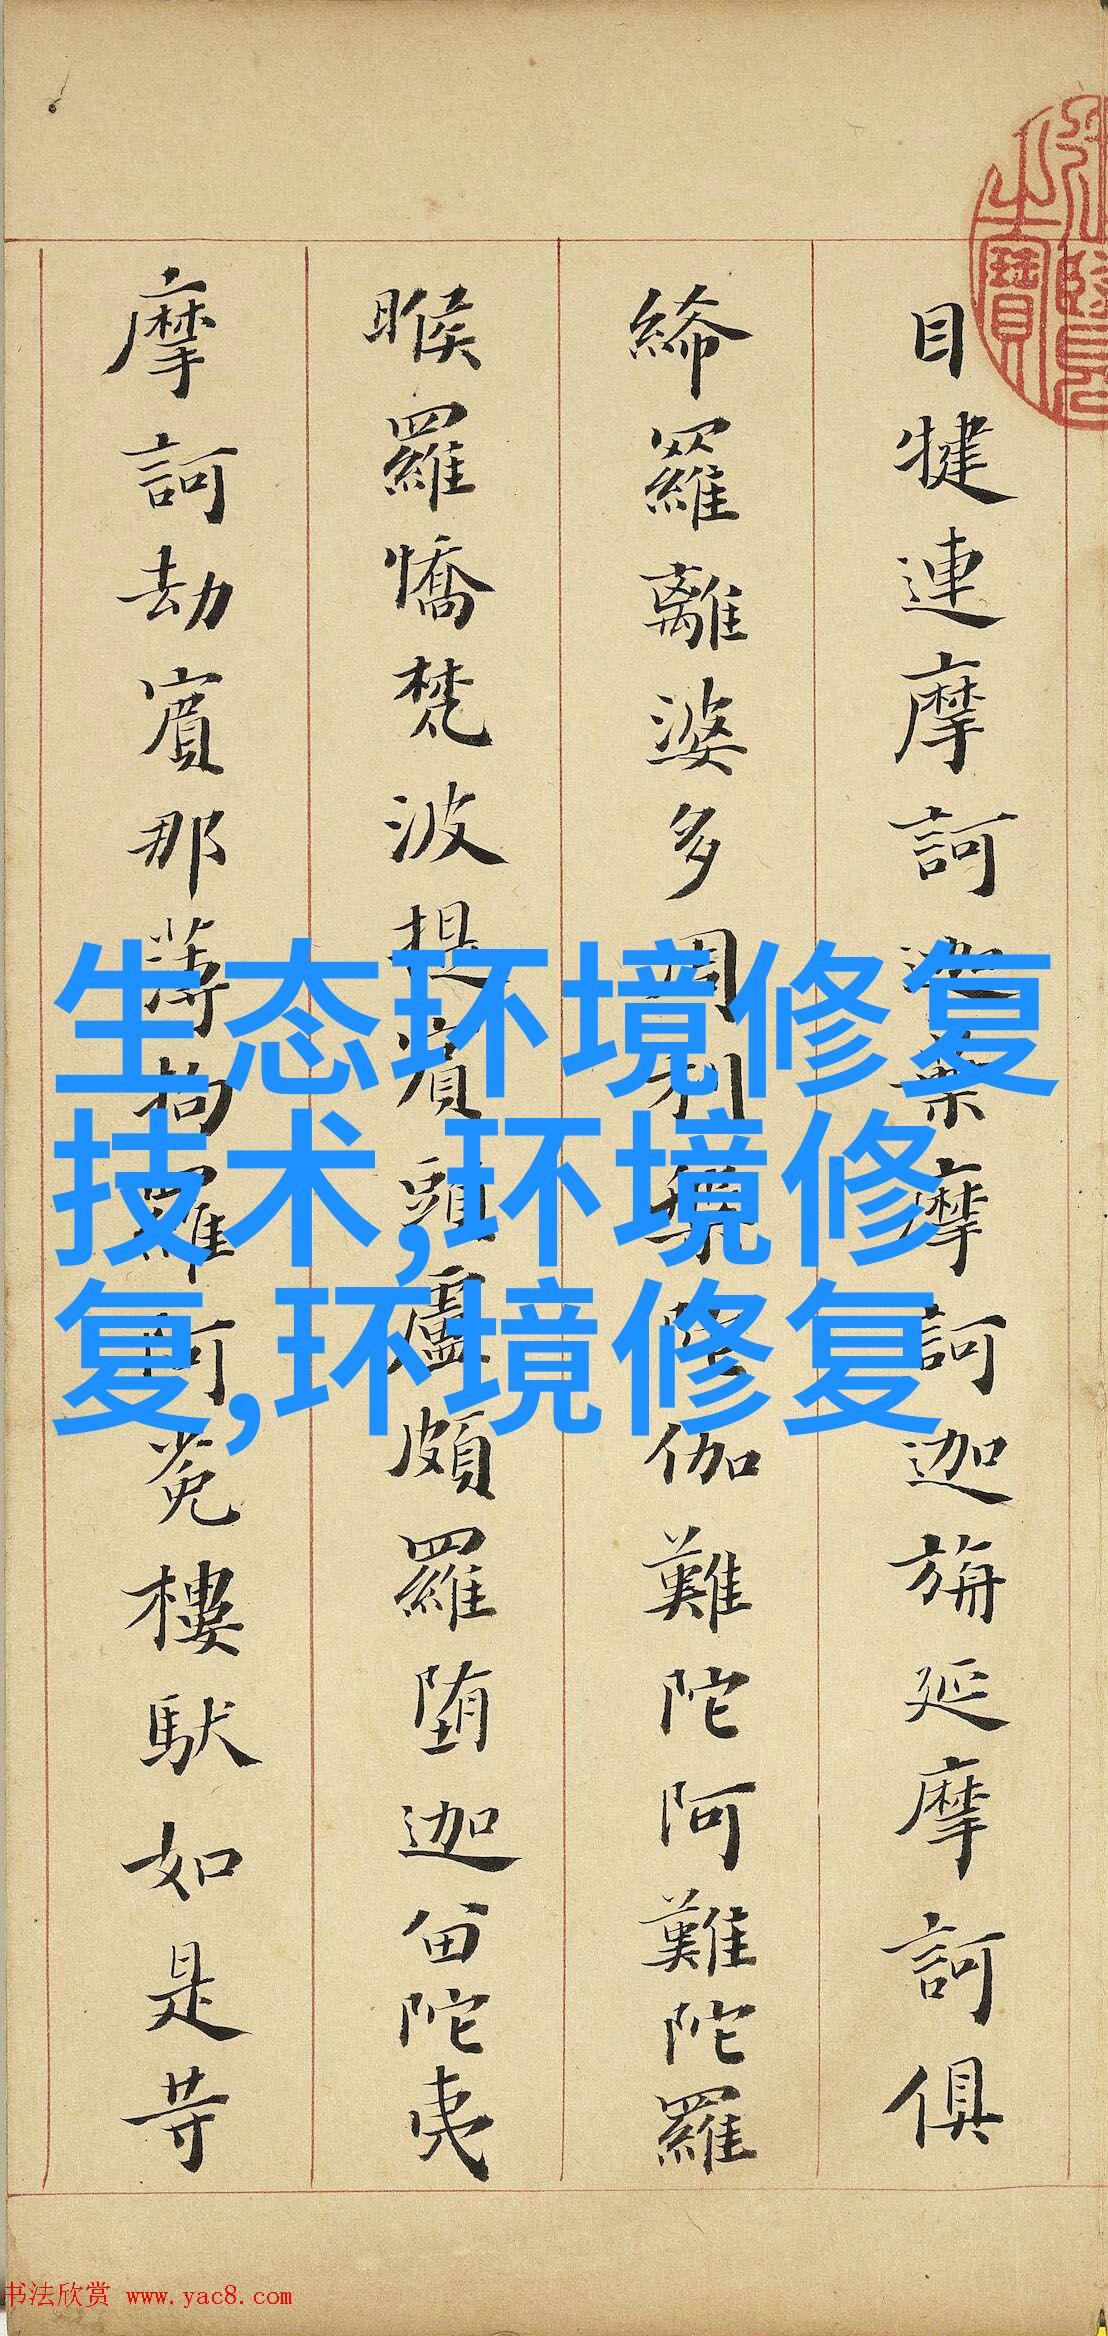 目犍連摩訶迦葉摩訶迦旃延摩訶俱
絺羅離婆多周利槃陀伽難陀阿難陀羅
睺羅憍梵波提賓頭盧頗羅堕迦留陀夷
摩訶劫賓那薄拘羅阿㝹樓馱如是等
生态环境修复
技术,环境修
复,环境修复
书法欣赏 www.yac8.com